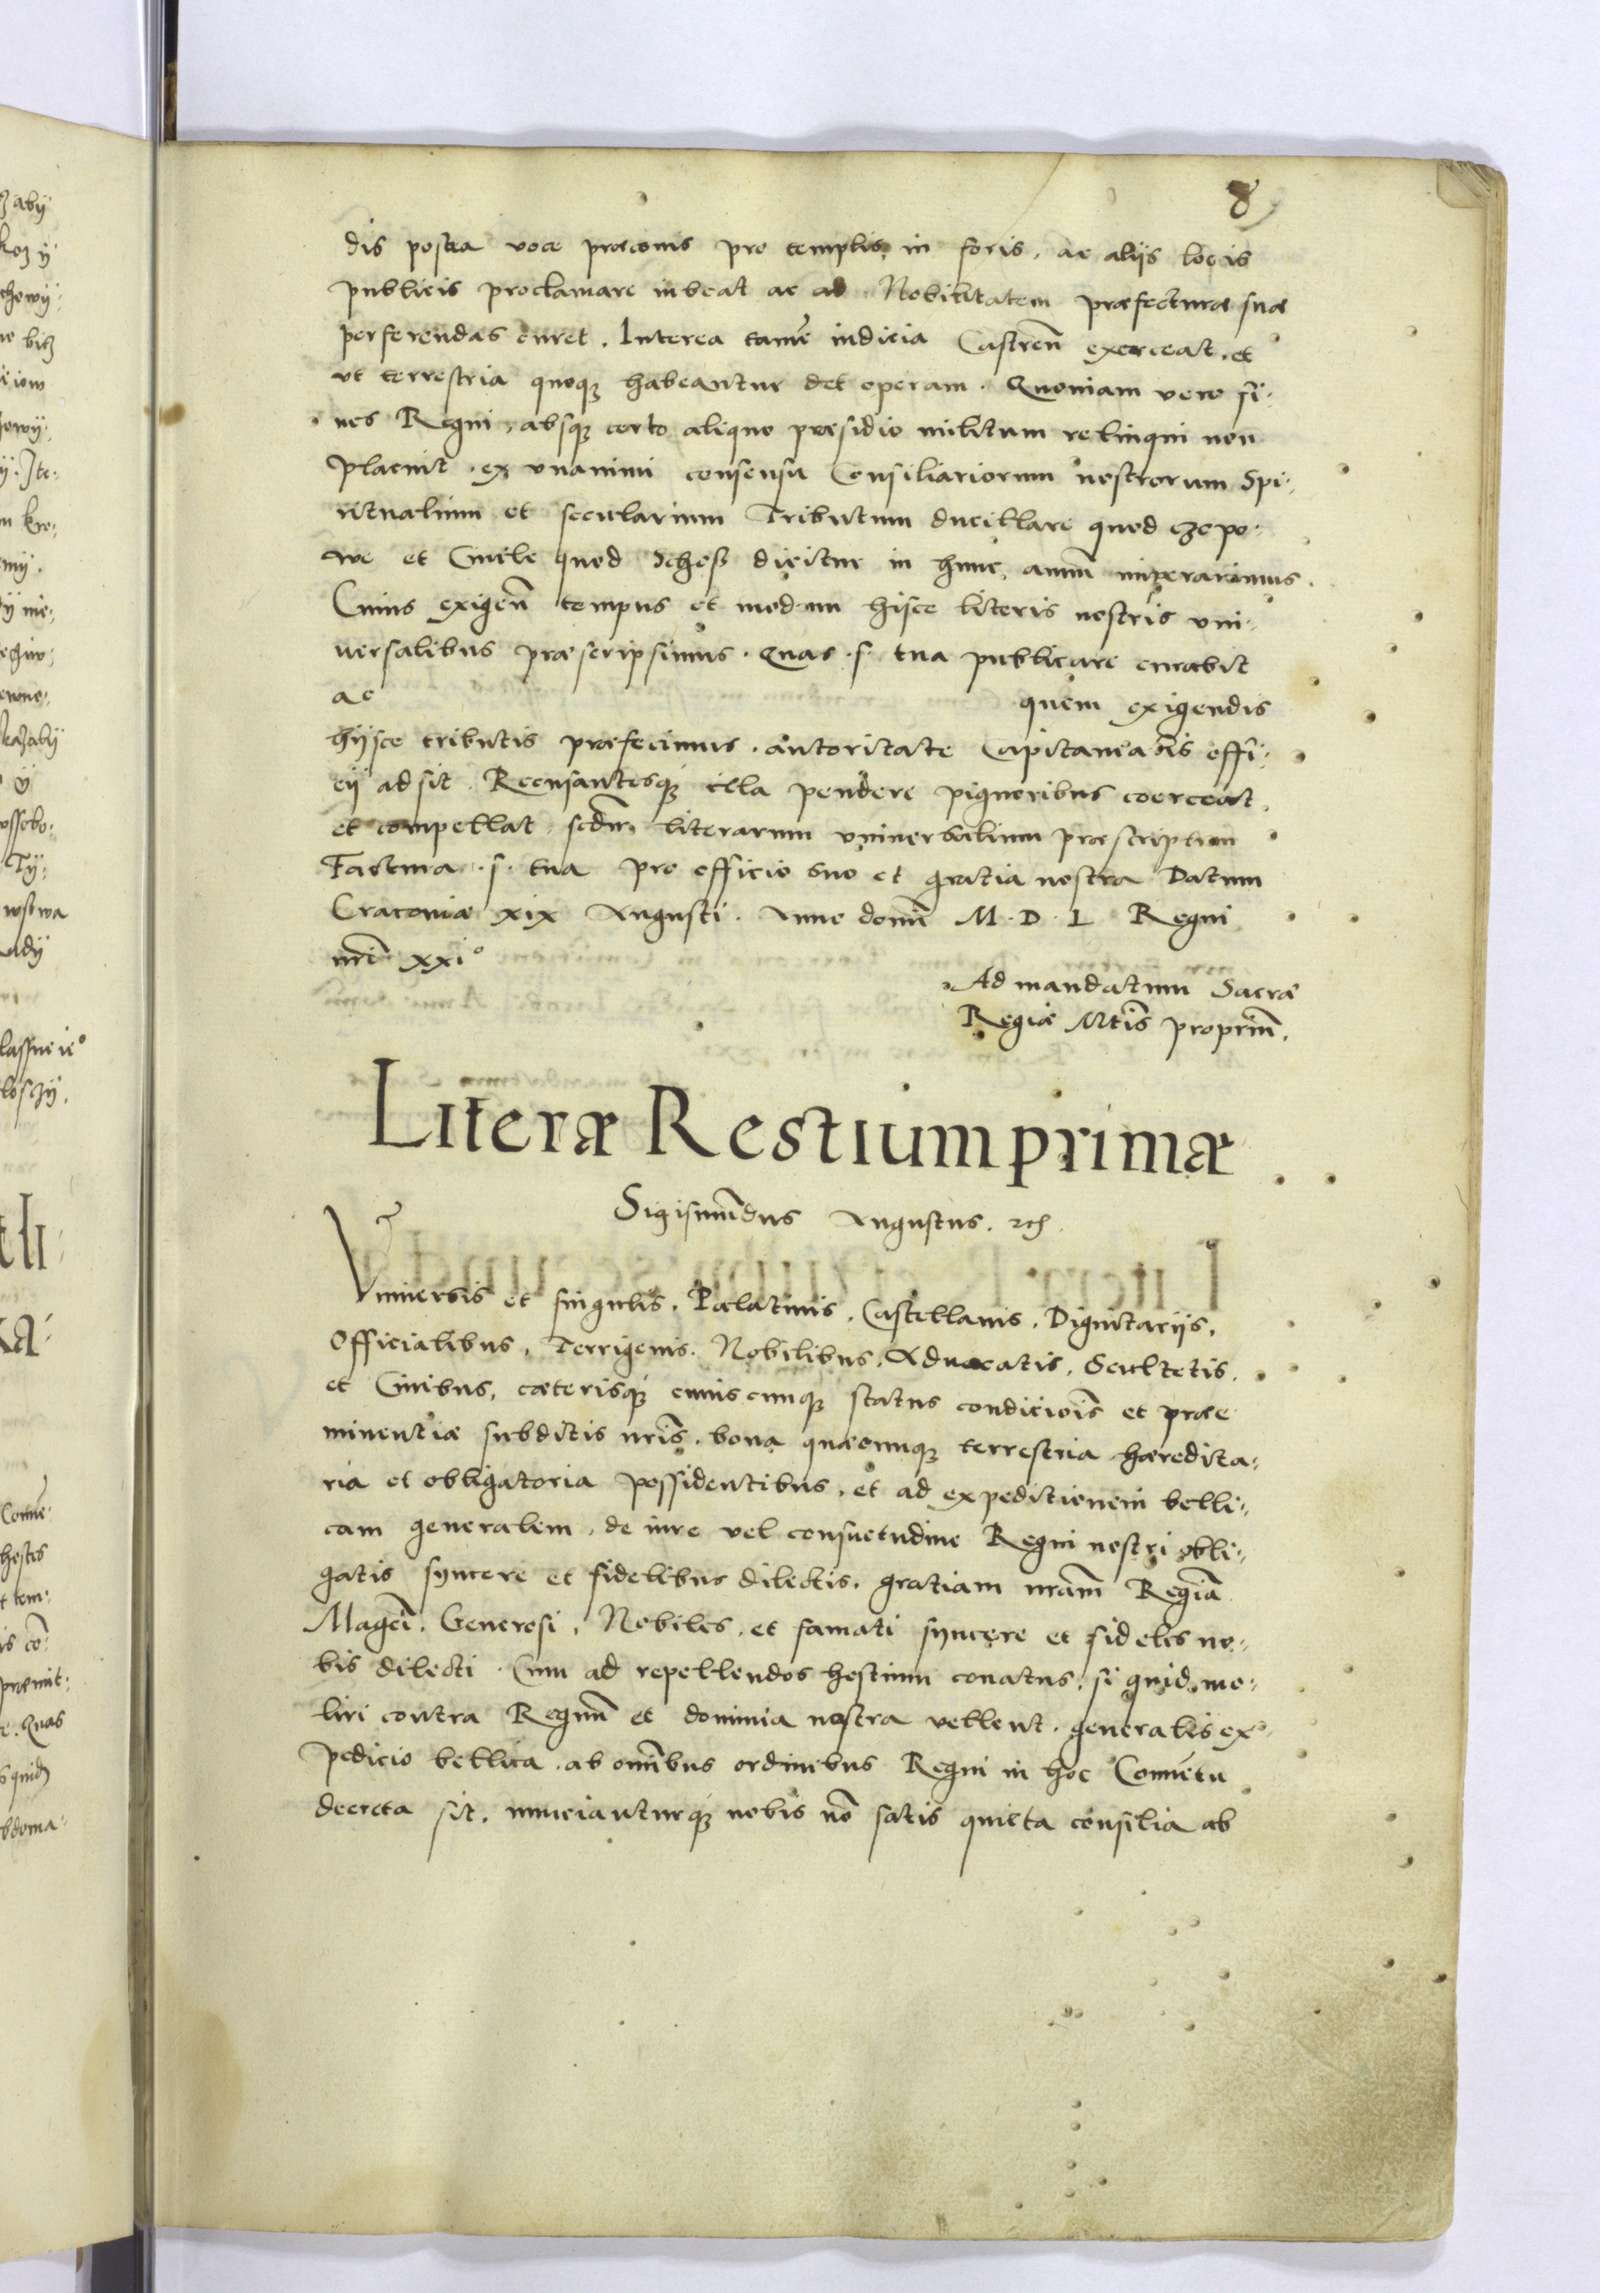 8
dis postea voce præconis pro templis in foris, ac aliis locis
publicis proclamare iubeat ac ad Nobilitatem præfecturæ suæ
perferendas curet. Interea tamẽ iudicia Castreñ exerceat, et
ut terrestria quoqꝫ habeantur det operam. Quoniam vero fi-
nes Regni, absqꝫ certo aliquo præsidio militum relinqui non
placuit, ex unanimi consensu Consiliariorum nostrorum Spi-
ritualium et secularium Tributum ducillare quod czopo-
we et Civile quod Schoß dicitur in hunc annũ imperavimus.
Cuius exigeñ tempus et modum hisce literis nostris uni-
versalibus præscripsimus. Quas .s. tua publicare curabit
ac quem exigendis
hiisce tributis præfecimus. autoritate Capitaneatis offi-
cii adsit. Recusantesqꝫ illa pendere pignoribus coerceat,
et compellat, scdm̃ literarum universalium præscriptum
Factura .s. tua pro officio suo et gratia nostra Datum
Cracoviæ xix Augusti. Anno domĩ M.D.L Regni
nrĩ xxi°
Ad mandatum Sacræ
Regiæ Mtĩs propriũ.
Literæ Restium primæ
Sigismũdus Augustus. ꝛcꝫ
Universis et singulis, Palatinis, Castellanis, Dignitariis,
Officialibus, Terrigenis, Nobilibus, Advocatis, Scultetis,
et Civibus, cæterisqꝫ cuiuscunqꝫ status condicioĩs et præe
minentiæ subditis nrĩs, bona quæcunqꝫ terrestria hæredita-
ria et obligatoria possidentibus, et ad expeditionem belli-
cam generalem, de iure vel consuetudine Regni nostri obli-
gatis syncere et fidelibus dilectis, gratiam nrãm Regiã
Magcĩ, Generosi, Nobiles, et famati syncere et fideles no-
bis dilecti. Cum ad repellendos hostium conatus, si quid mo-
liri contra Regnũ et dominia nostra vellent, generalis ex-
pedicio bellica, ab omĩbus ordinibus Regni in hoc Conuẽtu
decreta sit, nuncianturqꝫ nobis nõ satis quieta consilia ab